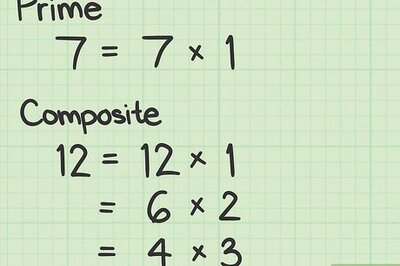 Prime
7 = 7 × 1
Composite
12 = 12 × 1
= 6 × 2
= 4 × 3